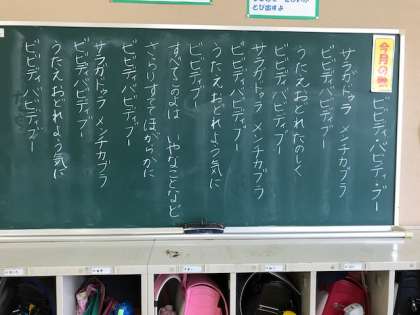 とび出すよ
今月の歌
ビビディ・バビディ・ブー
サラガドゥラ メンチカブラ
ビビディ バビディブー
うたえおどれたのしく
ビビディ バビディブー
サラガドゥラ メンチカブラ
ビビディ バビディブー
うたえおどれよう気に
ビビディブー
すべてこのよは いやなことなど
さらりすててほがらかに
ビビディ バビディブー
サラガドゥラ メンチカブラ
ビビディ バビディブー
うたえおどれよう気に
ビビディ バビディブー